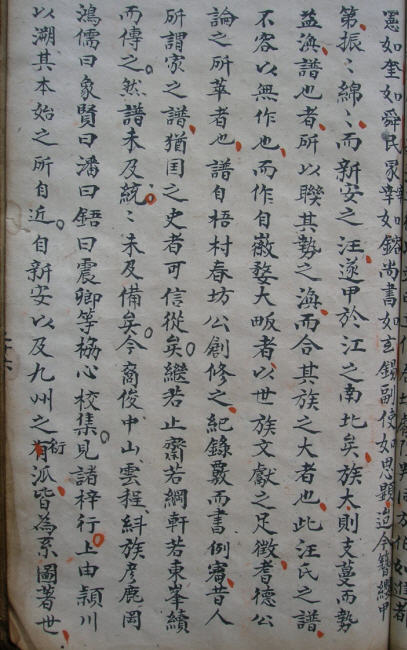 憲如奎如舜民冡宰如鋐尚書如玄錫副使如思顯迨今簪纓甲
第振〻綿〻而新安之汪遂甲於江之南北矣族大則支蔓而勢
益渙譜也者所以聯其勢之渙而合其族之大者也此汪氏之譜
不容以無作也而作自㣲婺大畈者以世族文獻之足徵耆德公
論之所萃者也譜自梧村春坊公創修之紀錄覈而書例審昔人
所謂家之譜猶国之史者可信從矣繼若止齋若綱軒若東峯續
而傳之然譜未及統〻未及備矣今裔俊中山雲程糾族彥鹿岡
鴻儒曰象賢曰潘曰鋙曰震卿等恊心校集見諸梓行上由頴川
以溯其本始之所自近自新安以及九州之有衍派皆為系圖著世